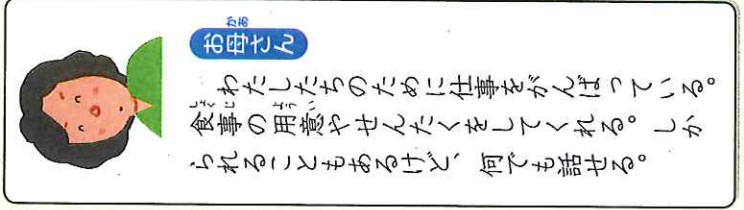 お母さん
わたしたちのために仕事をがんばっている。
食事の用意やせんたくをしてくれる。しか
られることもあるけど、何でも話せる。